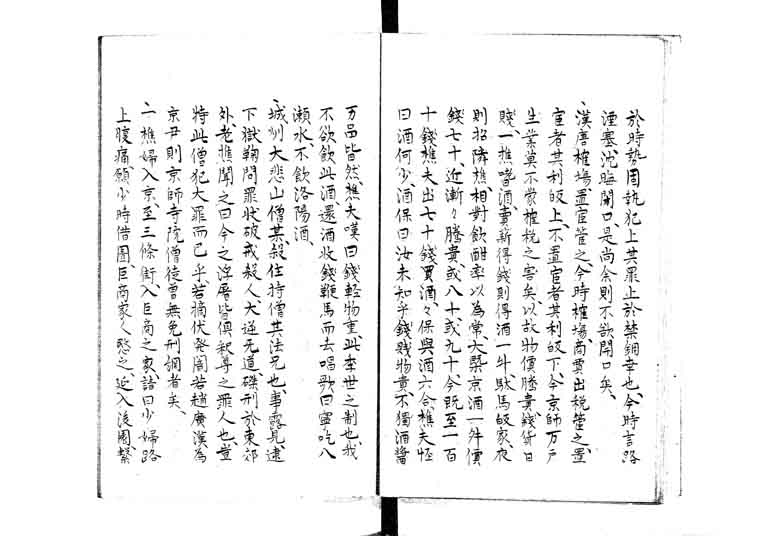 於時勢固執犯上其罪止於禁錮幸也今時言路
湮塞沈晦開口是尚余則不欲開口矣
漢唐榷場置宦管之今時榷場商賈出税管之置
宦者其利皈上不置宦者其利皈下今京師万户
生業莫不蒙榷税之害矣以故物價騰貴錢貨日
賤一樵嗜酒賣薪得錢則得酒一斗馱馬皈家夜
則招隣樵相對飲酣率以為常大槩京酒一斗價
錢七十近漸々騰貴或八十或九十今既至一百
十錢樵夫出七十錢買酒々保與酒六合樵夫怪
曰酒何少酒保曰汝未知乎錢賤物貴不獨酒醬
万品皆然樵夫嘆曰錢軽物重此季世之制也我
不欲飲此酒還酒收錢鞭馬而去唱歌曰寧吃八
瀬水不飲洛陽酒
城州大悲山僧某殺住持僧其法兄也事露見逮
下獄鞠問罪状破戒殺人大逆无道磔刑於東郊
外老樵聞之曰今之浮屠皆俱釈尊之罪人也豈
特此僧犯大罪而已乎若摘伏発陷若趙廣漢為
京尹則京師寺院僧徒曽無免刑網者矣
一樵婦入京至三條街入巨商之家詣曰少婦路
上腹痛願少時借圊巨商家人愍之延入後園繋